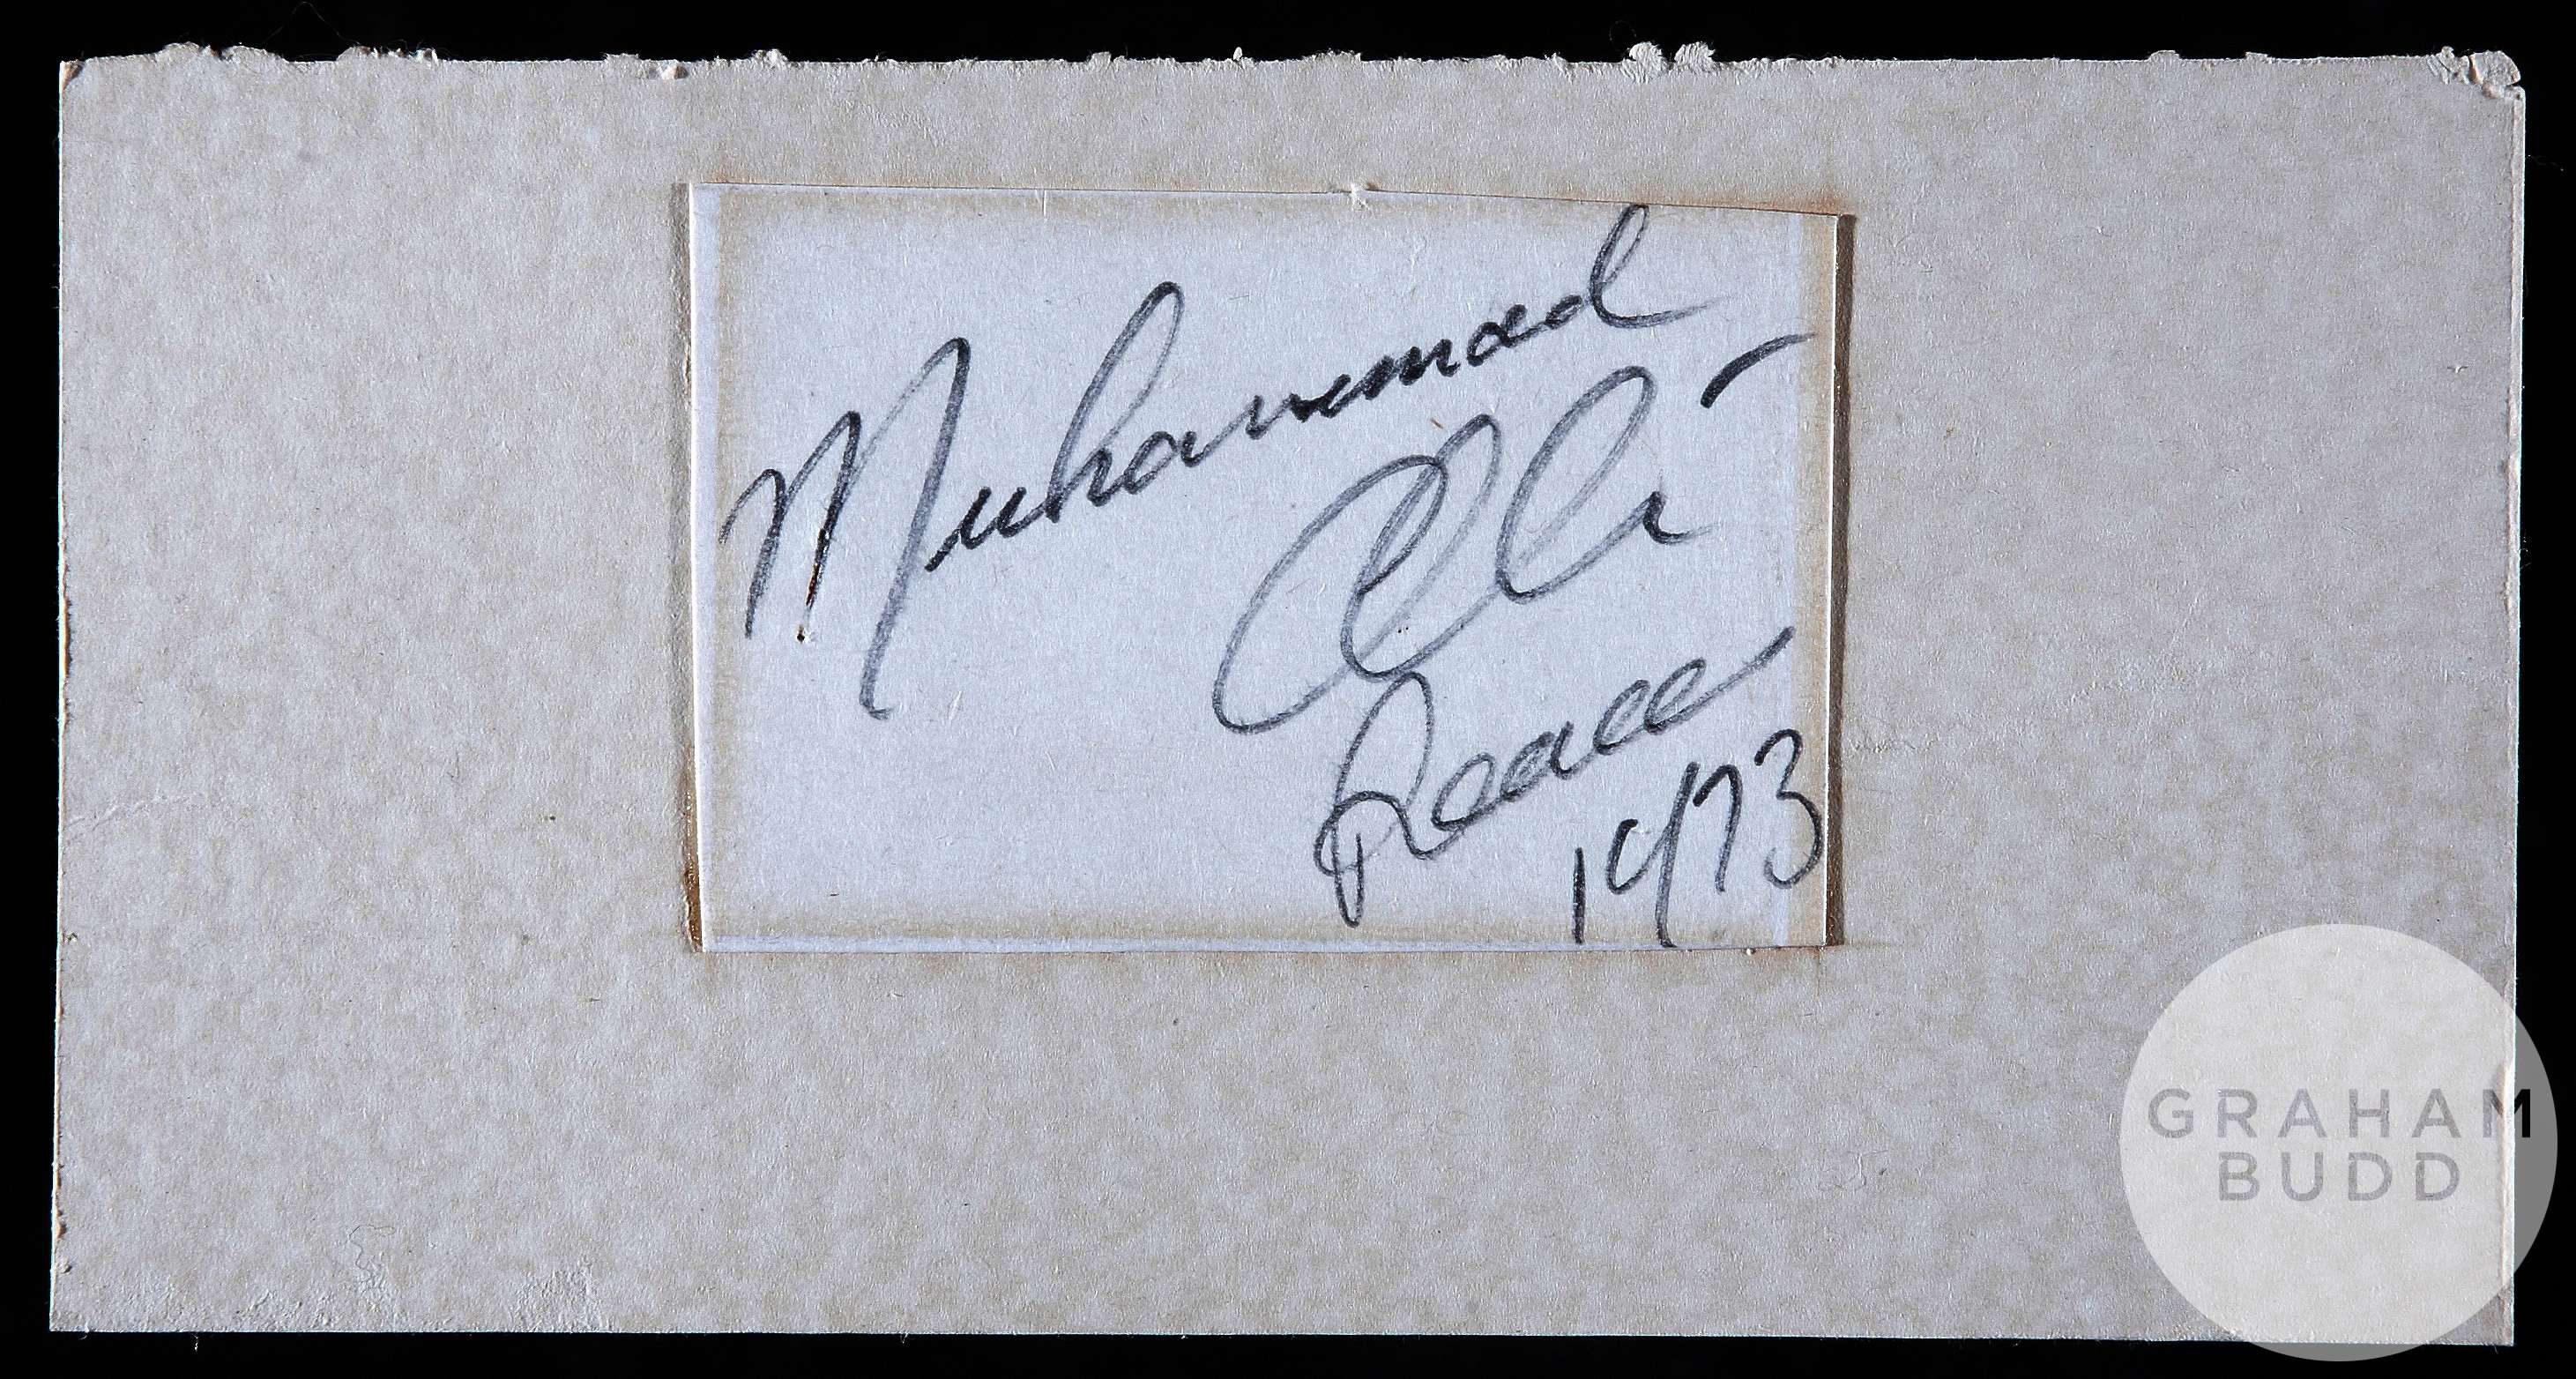 Muhammad
Ali
Peace
1973
GRAHAM
BUDD